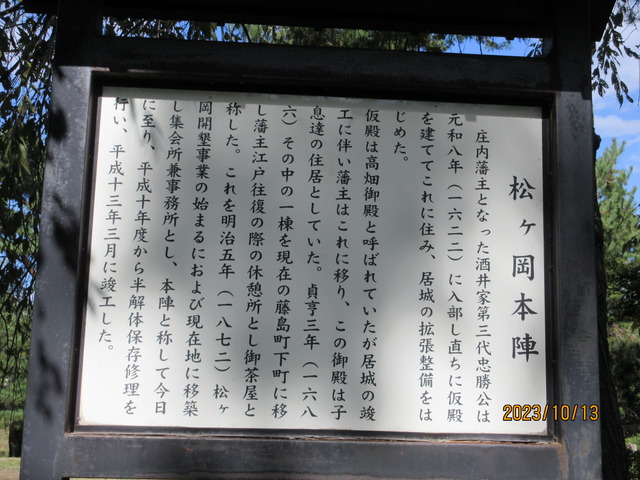 松ヶ岡本陣
庄内藩主となった酒井家第三代忠勝公は
元和八年（一六二二）に入部し直ちに仮殿
を建ててこれに住み、居城の拡張整備をは
じめた。
仮殿は高畑御殿と呼ばれていたが居城の竣
工に伴い藩主はこれに移り、この御殿は子
息達の住居としていた。貞亨三年（一六八
六）その中の一棟を現在の藤島町下町に移
し藩主江戸往復の際の休憩所とし御茶屋と
称した。これを明治五年（一八七二）松ヶ
岡開墾事業の始まるにおよび現在地に移築
し集会所兼事務所とし、本陣と称して今日
に至り、平成十年度から半解体保存修理を
行い、平成十三年三月に竣工した。
2023/10/13